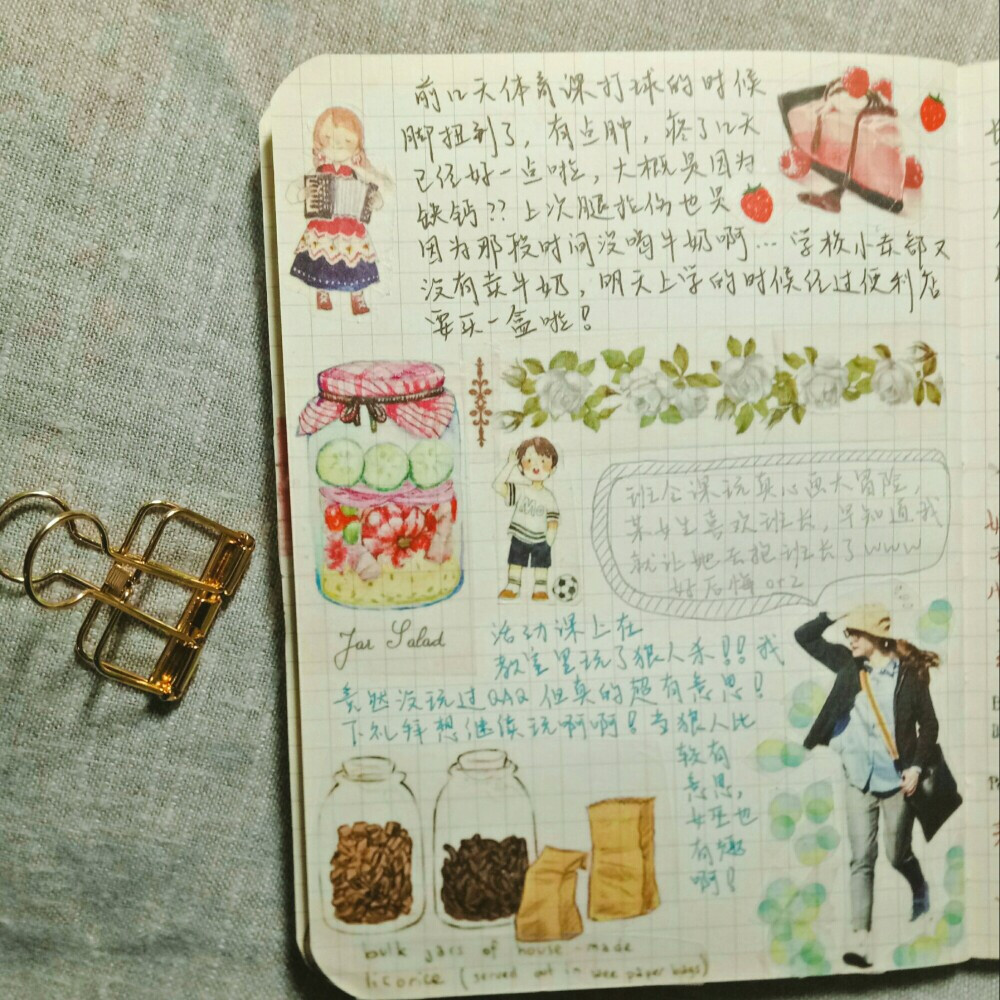 前几天体育课打球的时候
脚扭到了，有点肿，疼了几天
已经好一点啦，大概是因为
缺钙??上次腿拉伤也是
因为那段时间没喝牛奶啊…学校小卖部又
没有卖牛奶，明天上学的时候经过便利店
要买一盒啦！
班会课玩真心话大冒险，
某女生喜欢班长，早知道我
就让她去抱班长了www
好后悔orz
Jar Salad
活动课上在
教室里玩了狼人杀！！我
竟然没玩过QAQ但真的超有意思！
下礼拜想继续玩啊啊！当狼人比
较有
意思，
女巫也
有趣
啊！
bulk jars of house-made
licorice (served out in wee paper bags)